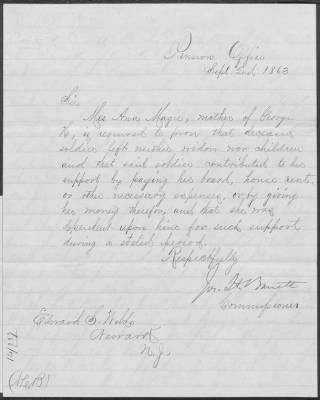 Pension Office
Sept. 2nd, 1863
Sir
Mrs Ann Magie, mother of George
is required to prove that deceased
soldier left neither widow nor children
and that said soldier contributed to her
support by paying her board, house rent,
or other necessary expenses, or by giving
her money therefor, and that she was
dependent upon him for such support
during a stated period.
Respectfully
Jos. H. Barrett
Commissioner
Edward S.
Newark
N. J.